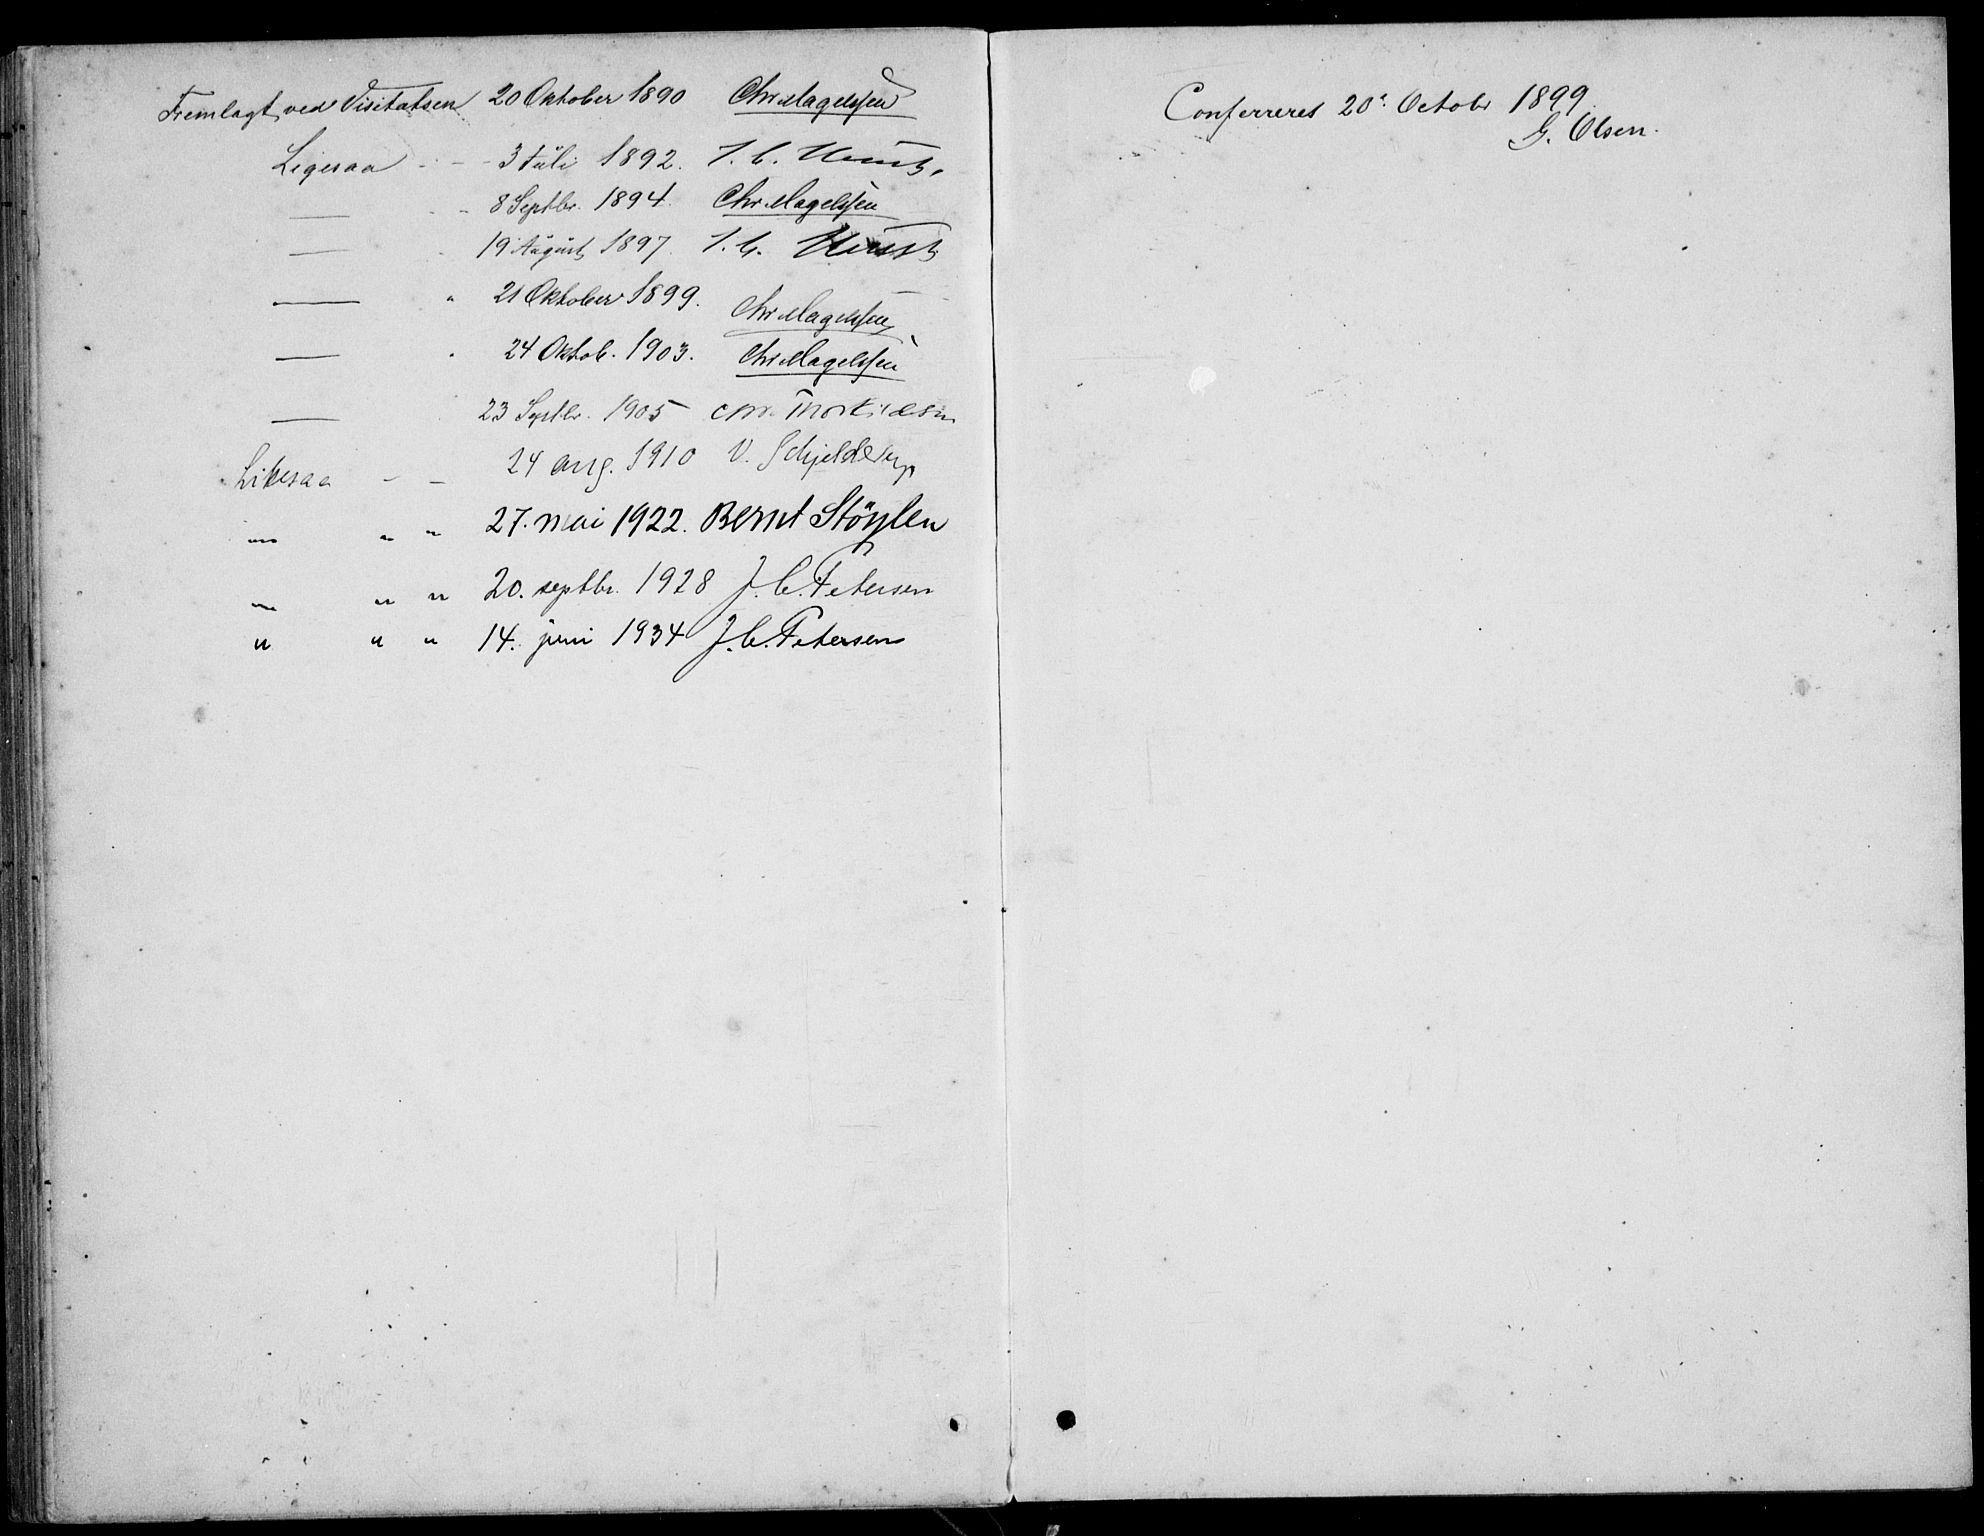 Fremlagt ved Visitatsen 20 Oktober 1890 Chr Magelssen
Ligesaa - - - 3 Juli 1892. J. C.
— - - 8 Septbr. 1894. Chr Magelssen
— - 19 August 1897. J. C.
— " 21 Oktober 1899. Chr Magelssen
— " 24 Oktob. 1903. Chr Magelssen
— 23 Septbr. 1905 Chr. Thorkildsen
Likesaa - - 24 aug. 1910 V. Schjelderup
" " " 27. mai 1922. Bernt Støylen
" " " 20. septbr. 1928 J. C. Petersen
" " " 14. juni 1934 J. C. Petersen
Conferreret 20. Octobr 1899
G. Olsen.